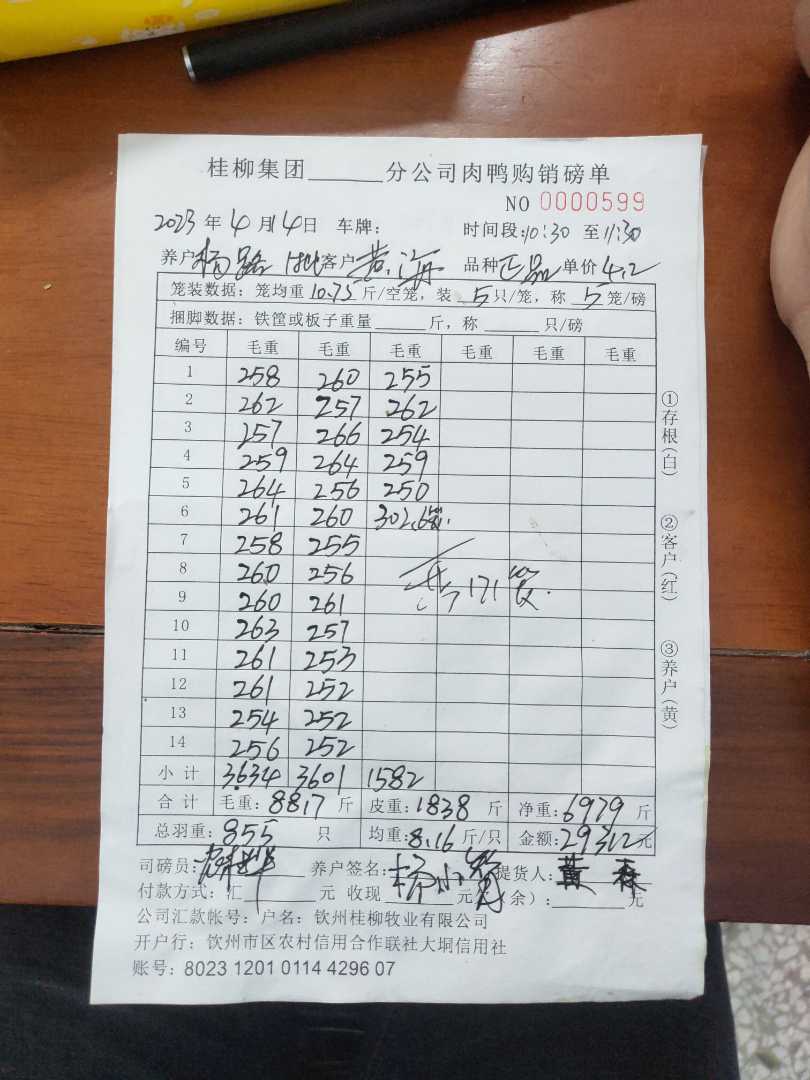 桂柳集团______分公司肉鸭购销磅单
NO 0000599
2023 年 4 月 14 日 车牌: 时间段:10:30 至 11:30
养户 杨路 批 客户 黄海 品种 正品 单价 4.2
笼装数据: 笼均重 10.75 斤/空笼, 装 5 只/笼, 称 5 笼/磅
捆脚数据: 铁筐或板子重量____斤, 称____只/磅
编号 毛重 毛重 毛重 毛重 毛重 毛重
1 258 260 255
2 262 257 262
3 257 266 254
4 259 264 259
5 264 256 250
6 261 260 302.6笼.
7 258 255
8 260 256
9 260 261
共171笼
10 263 257
11 261 253
12 261 252
13 254 252
14 256 252
小计 3634 3601 1582
合计 毛重: 8817 斤 皮重: 1838 斤 净重: 6979 斤
总羽重: 855 只 均重: 8.16 斤/只 金额: 29312 元
司磅员: 养户签名: 杨小路 提货人: 黄森
付款方式: 汇______元 收现______元 余): ______元
公司汇款帐号: 户名: 钦州桂柳牧业有限公司
开户行: 钦州市区农村信用合作联社大垌信用社
账号: 8023 1201 0114 4296 07
①存根(白)
②客户(红)
③养户(黄)